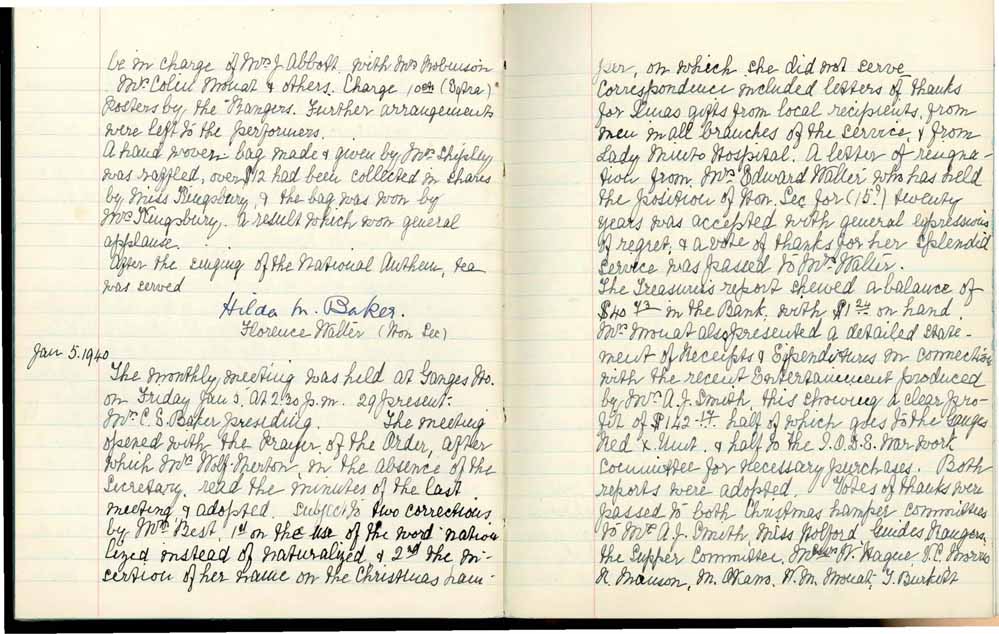 be in charge of Mrs J. Abbott with Mrs Robinson
Mrs Colin Mouat & others. Charge 10cts (Extra)
Posters by the Rangers. Further arrangements
were left to the performers.
A hand woven bag made & given by Mrs Shipley
was raffled, over $12 had been collected in shares
by Miss Kingsbury, & the bag was won by
Mrs Kingsbury, a result which won general
applause.
After the singing of the National Anthem, tea
was served
Hilda M. Baker.
Florence Walter (Hon Sec)
Jan 5. 1940
The monthly meeting was held at Ganges Ho.
on Friday Jan 5. at 2.30 p.m. 29 present:
Mrs C. S. Baker presiding. The meeting
opened with the Prayer of the Order, after
which Mrs Wolf-Merton, in the absence of the
Secretary, read the minutes of the last
meeting & adopted. subject to two corrections
by Mrs Best, 1st on the use of the word natio
lized instead of naturalized & 2nd the in-
sertion of her name on the Christmas ham-
per, on which she did not serve
Correspondence included letters of thanks
for Xmas gifts from local recipients, from
men in all branches of the service, & from
Lady Minto Hospital. A letter of resigna-
tion from, Mrs Edward Walter who has held
the position of Hon. Sec for (15?) twenty
years was accepted with general expressions
of regret, & a vote of thanks for her splendid
service was passed to Mrs Walter.
The Treasurer's report shewed a balance of
$40 73 in the Bank, with $1 24 on hand.
Mrs Mouat also presented a detailed state-
ment of Receipts & Expenditures in connection
with the recent Entertainment produced
by Mrs A. J. Smith, this showing a clear pro-
fit of $142-17. half of which goes to the Ganges
Red X. Unit. & half to the I.O.D.E. War work
committee for necessary purchases. Both
reports were adopted. Votes of thanks were
passed to both Christmas hamper committees
to Mrs A. J. Smith, Miss Holford Guides Rangers,
the Supper Committee, W. Hague, Morris
R. Manson, M. M. Mouat, T. Burkett